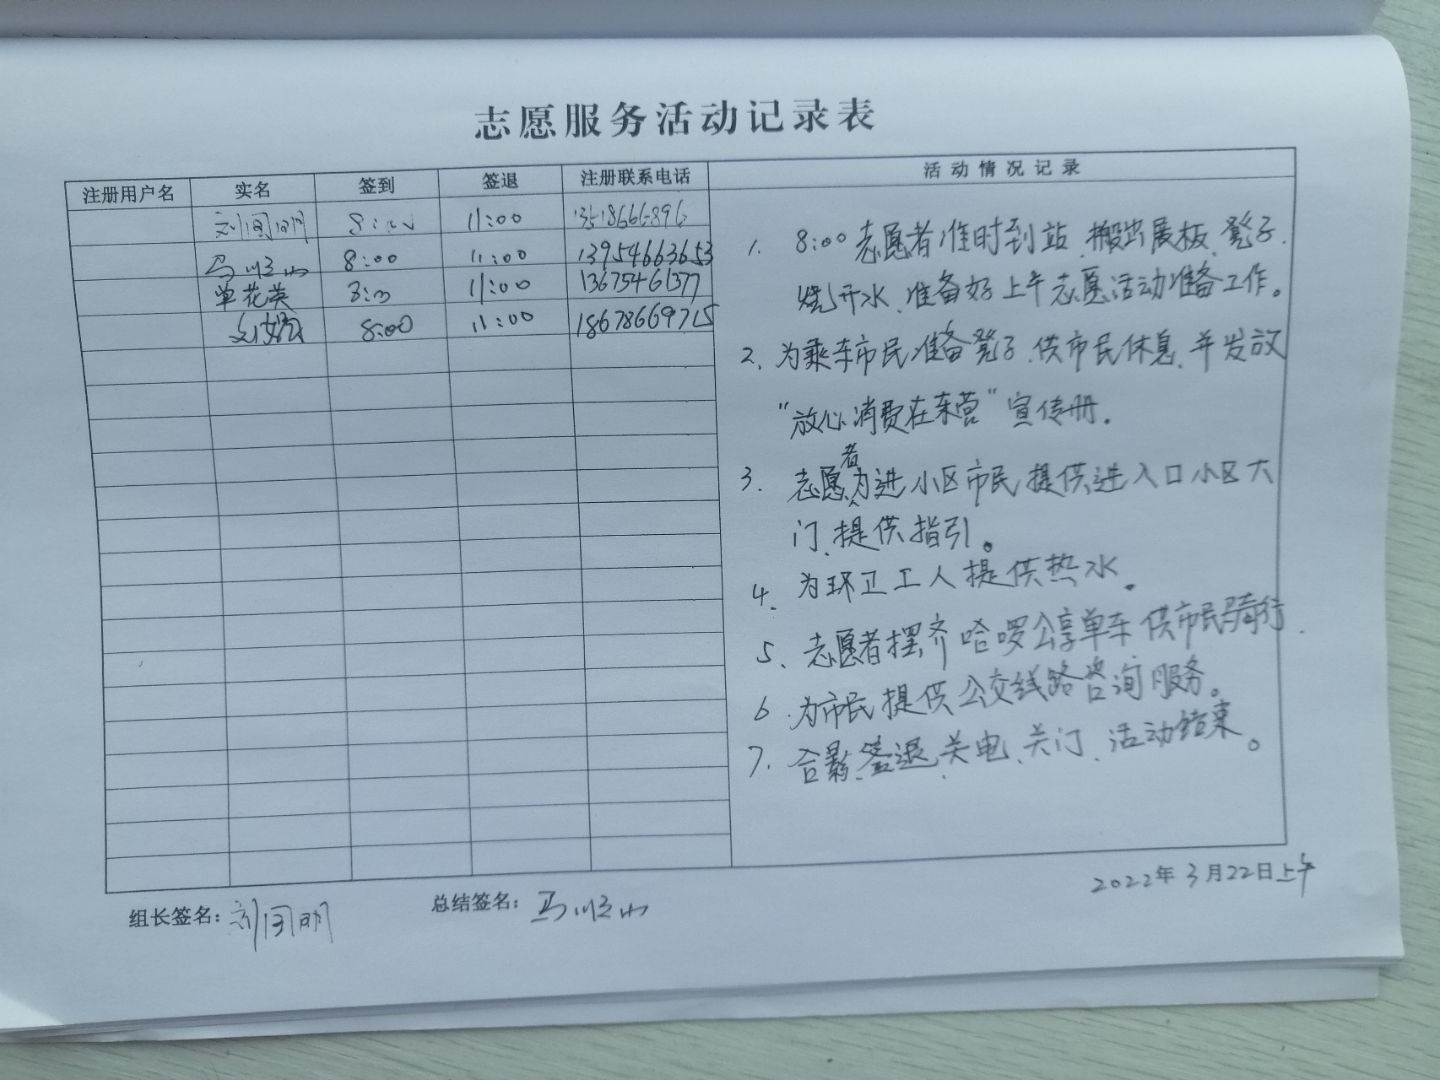 志愿服务活动记录表
注册用户名 实名 签到 签退 注册联系电话 活动情况记录
11:00
8:00 11:00 13954663653
单花英 11:00 13675461377
8:00 11:00 18678669715
1. 8:00志愿者准时到站、搬出展板、凳子、
烧开水、准备好上午志愿活动准备工作。
2、为乘车市民准备凳子、供市民休息、并发放
"放心消费在东营"宣传册.
3. 志愿者为进小区市民提供进入口小区大
门、提供指引。
4、为环卫工人提供热水。
5、志愿者摆齐哈啰公享单车供市民骑行.
6、为市民提供公交线路咨询服务。
7、合影、签退、关电、关门、活动结束。
2022年3月22日上午
组长签名: 总结签名: